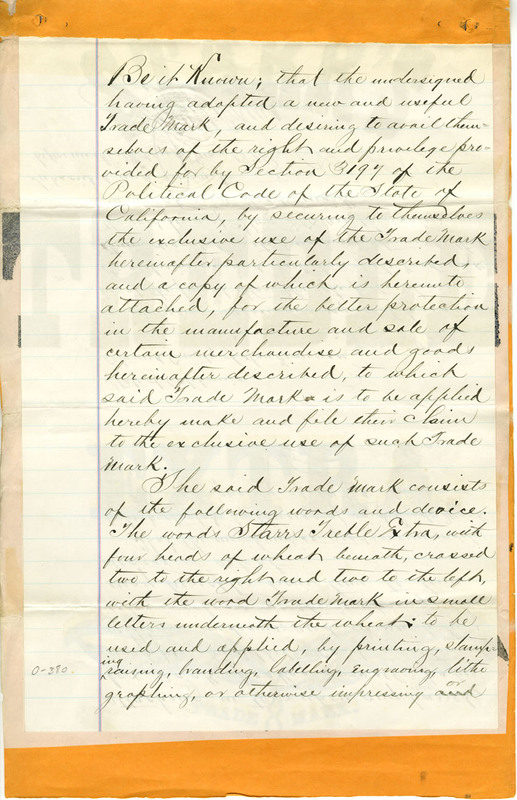 Be it Known; that the undersigned
having adopted a new and useful
Trade Mark, and desiring to avail them-
selves of the right and privilege pro-
vided for by Section 3197 of the
Political Code of the State of
California, by securing to themselves
the exclusive use of the Trade Mark
hereinafter particularly described,
and a copy of which is hereunto
attached, for the better protection
in the manufacture and sale of
certain merchandise and goods
hereinafter described, to which
said Trade Mark is to be applied
hereby make and file their claim
to the exclusive use of such Trade
Mark.
The said Trade Mark consists
of the following words and device.
The words Starrs Treble Extra, with
four heads of wheat beneath, crossed
two to the right and two to the left,
with the word Trade Mark in small
letters underneath the wheat; to be
used and applied, by printing, stamp-
ing
raising, branding, labelling, engraving, litho
or
graphing, or otherwise impressing and
0-380.